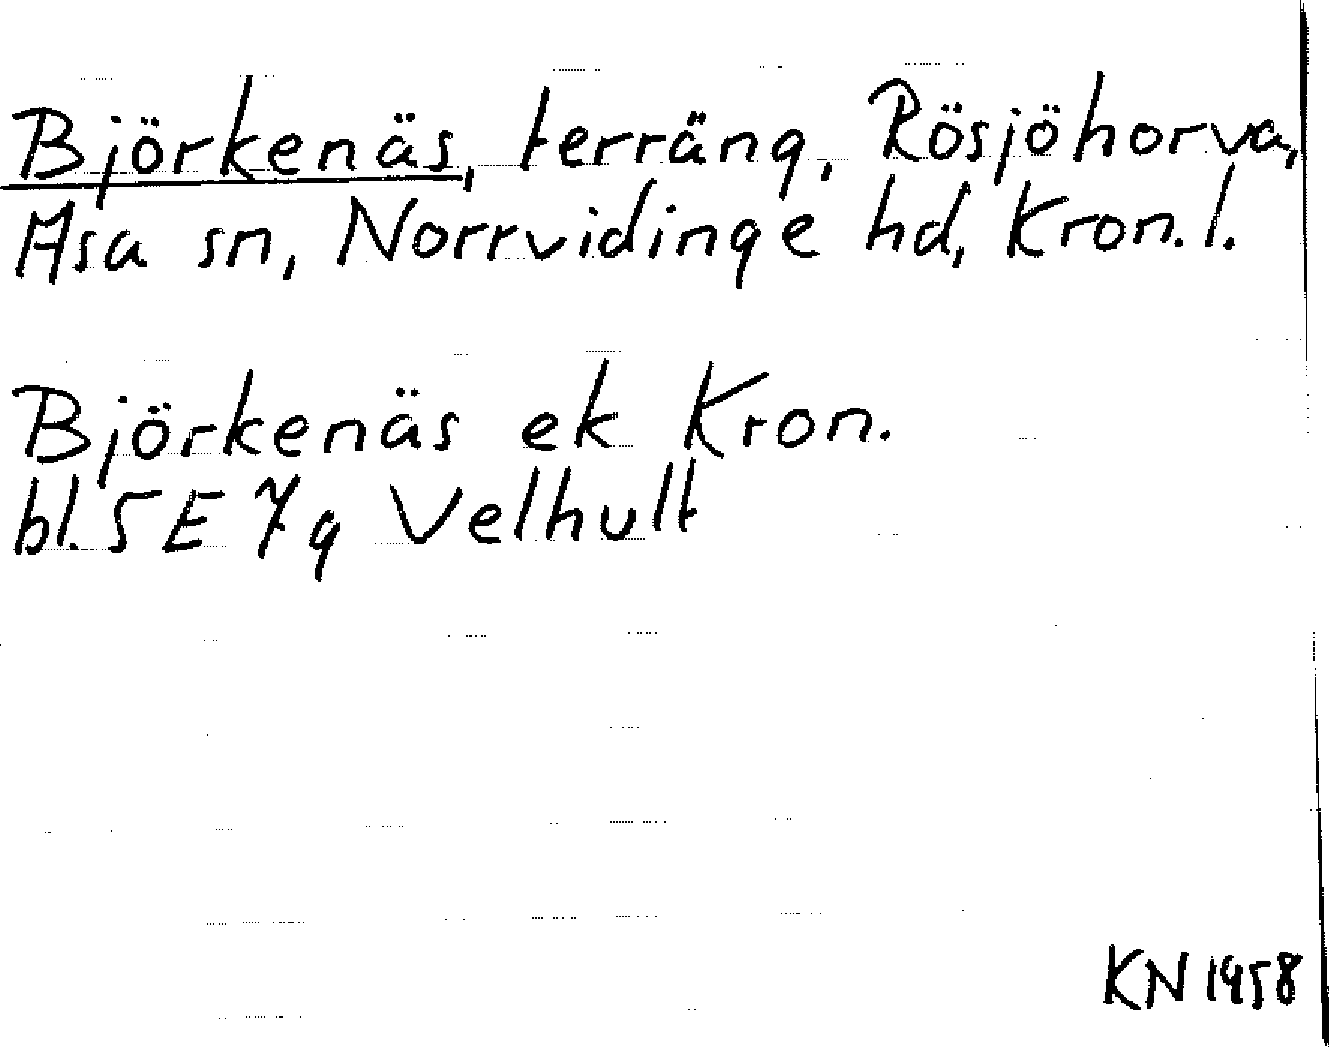 Björkenäs, terräng, Rösjöhorva,
Asa sn, Norrvidinge hd, Kron. l.
Björkenäs ek Kron.
bl. 5 E 7g Velhult
KN 1958